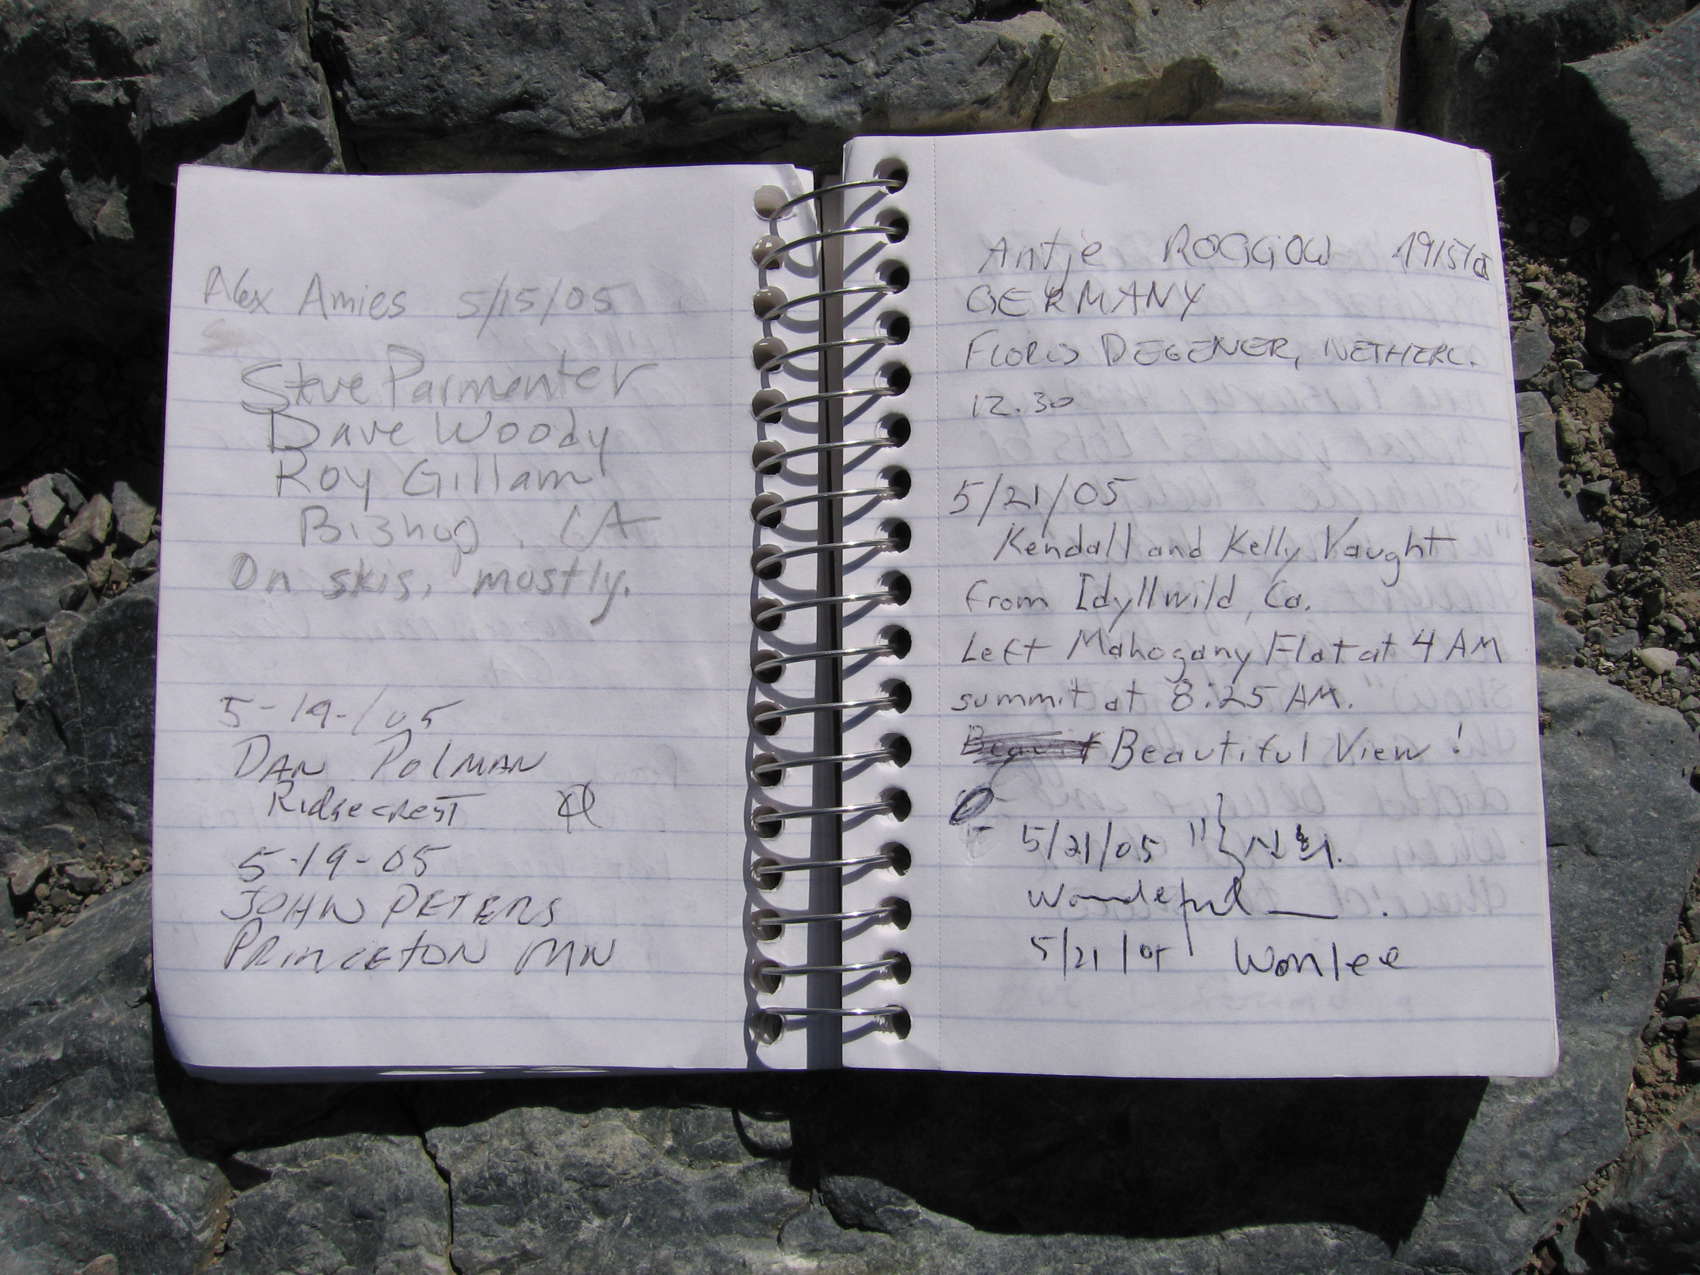 Alex Amies 5/15/05
Steve Parmenter
Dave Woody
Roy Gillam
Bishop, CA
On skis, mostly.
5-19-/05
DAN POLMAN
Ridgecrest
5-19-05
JOHN PETERS
PRINCETON MN
Antje ROGGOW 19/5/05
GERMANY
FLORIS DEGENER, NETHERL.
12.30
5/21/05
Kendall and Kelly Vaught
from Idyllwild, Ca.
Left Mahogany Flat at 4 AM
summit at 8:25 AM.
Beautiful View!
5/21/05
Wondeful
5/21/05 Wonlee